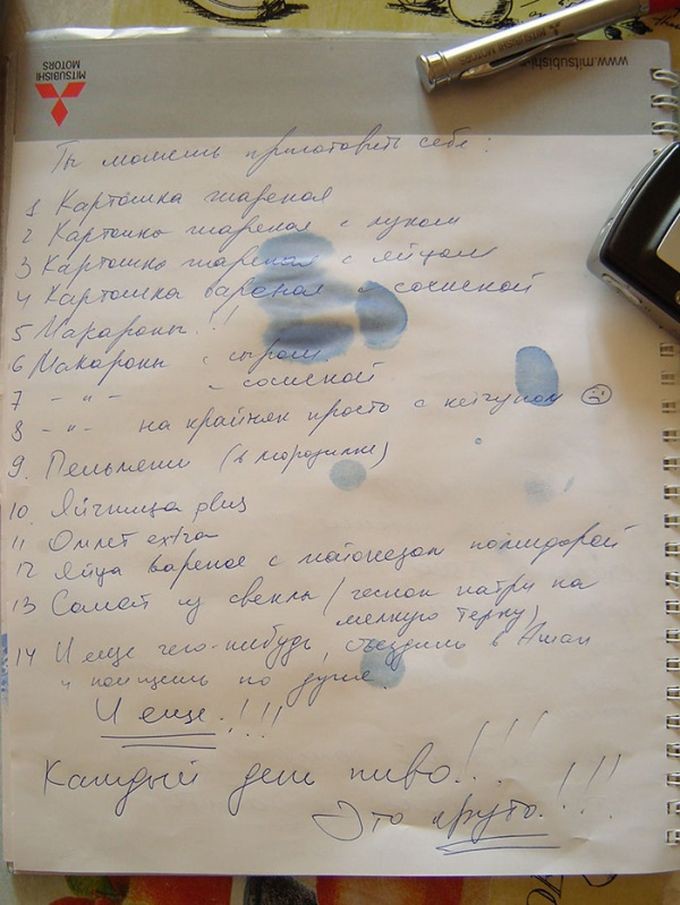 www.mitsubishi-
MITSUBISHI MOTORS
MITSUBISHI
MOTORS
Ты можешь приготовить себе:
1 Картошка жареная
2 Картошка жареная с луком
3 Картошка жареная с яйцом
4 Картошка вареная с сосиской
5 Макароны!!
6 Макароны с сыром
7 - " - с сосиской
8 - " - на крайняк просто с кетчупом
9. Пельмени (в морозилке)
10. Яйчница plus
11 Омлет extra
12 Яйца вареное с майонезом помидорой
13 Салат из свеклы (чеснок натри на
мелкую терку)
14 И еще чего-нибудь, съездишь в Ашан
и поищешь по душе.
И еще!!!!
Каждый день пиво!!!
Это круто!!!